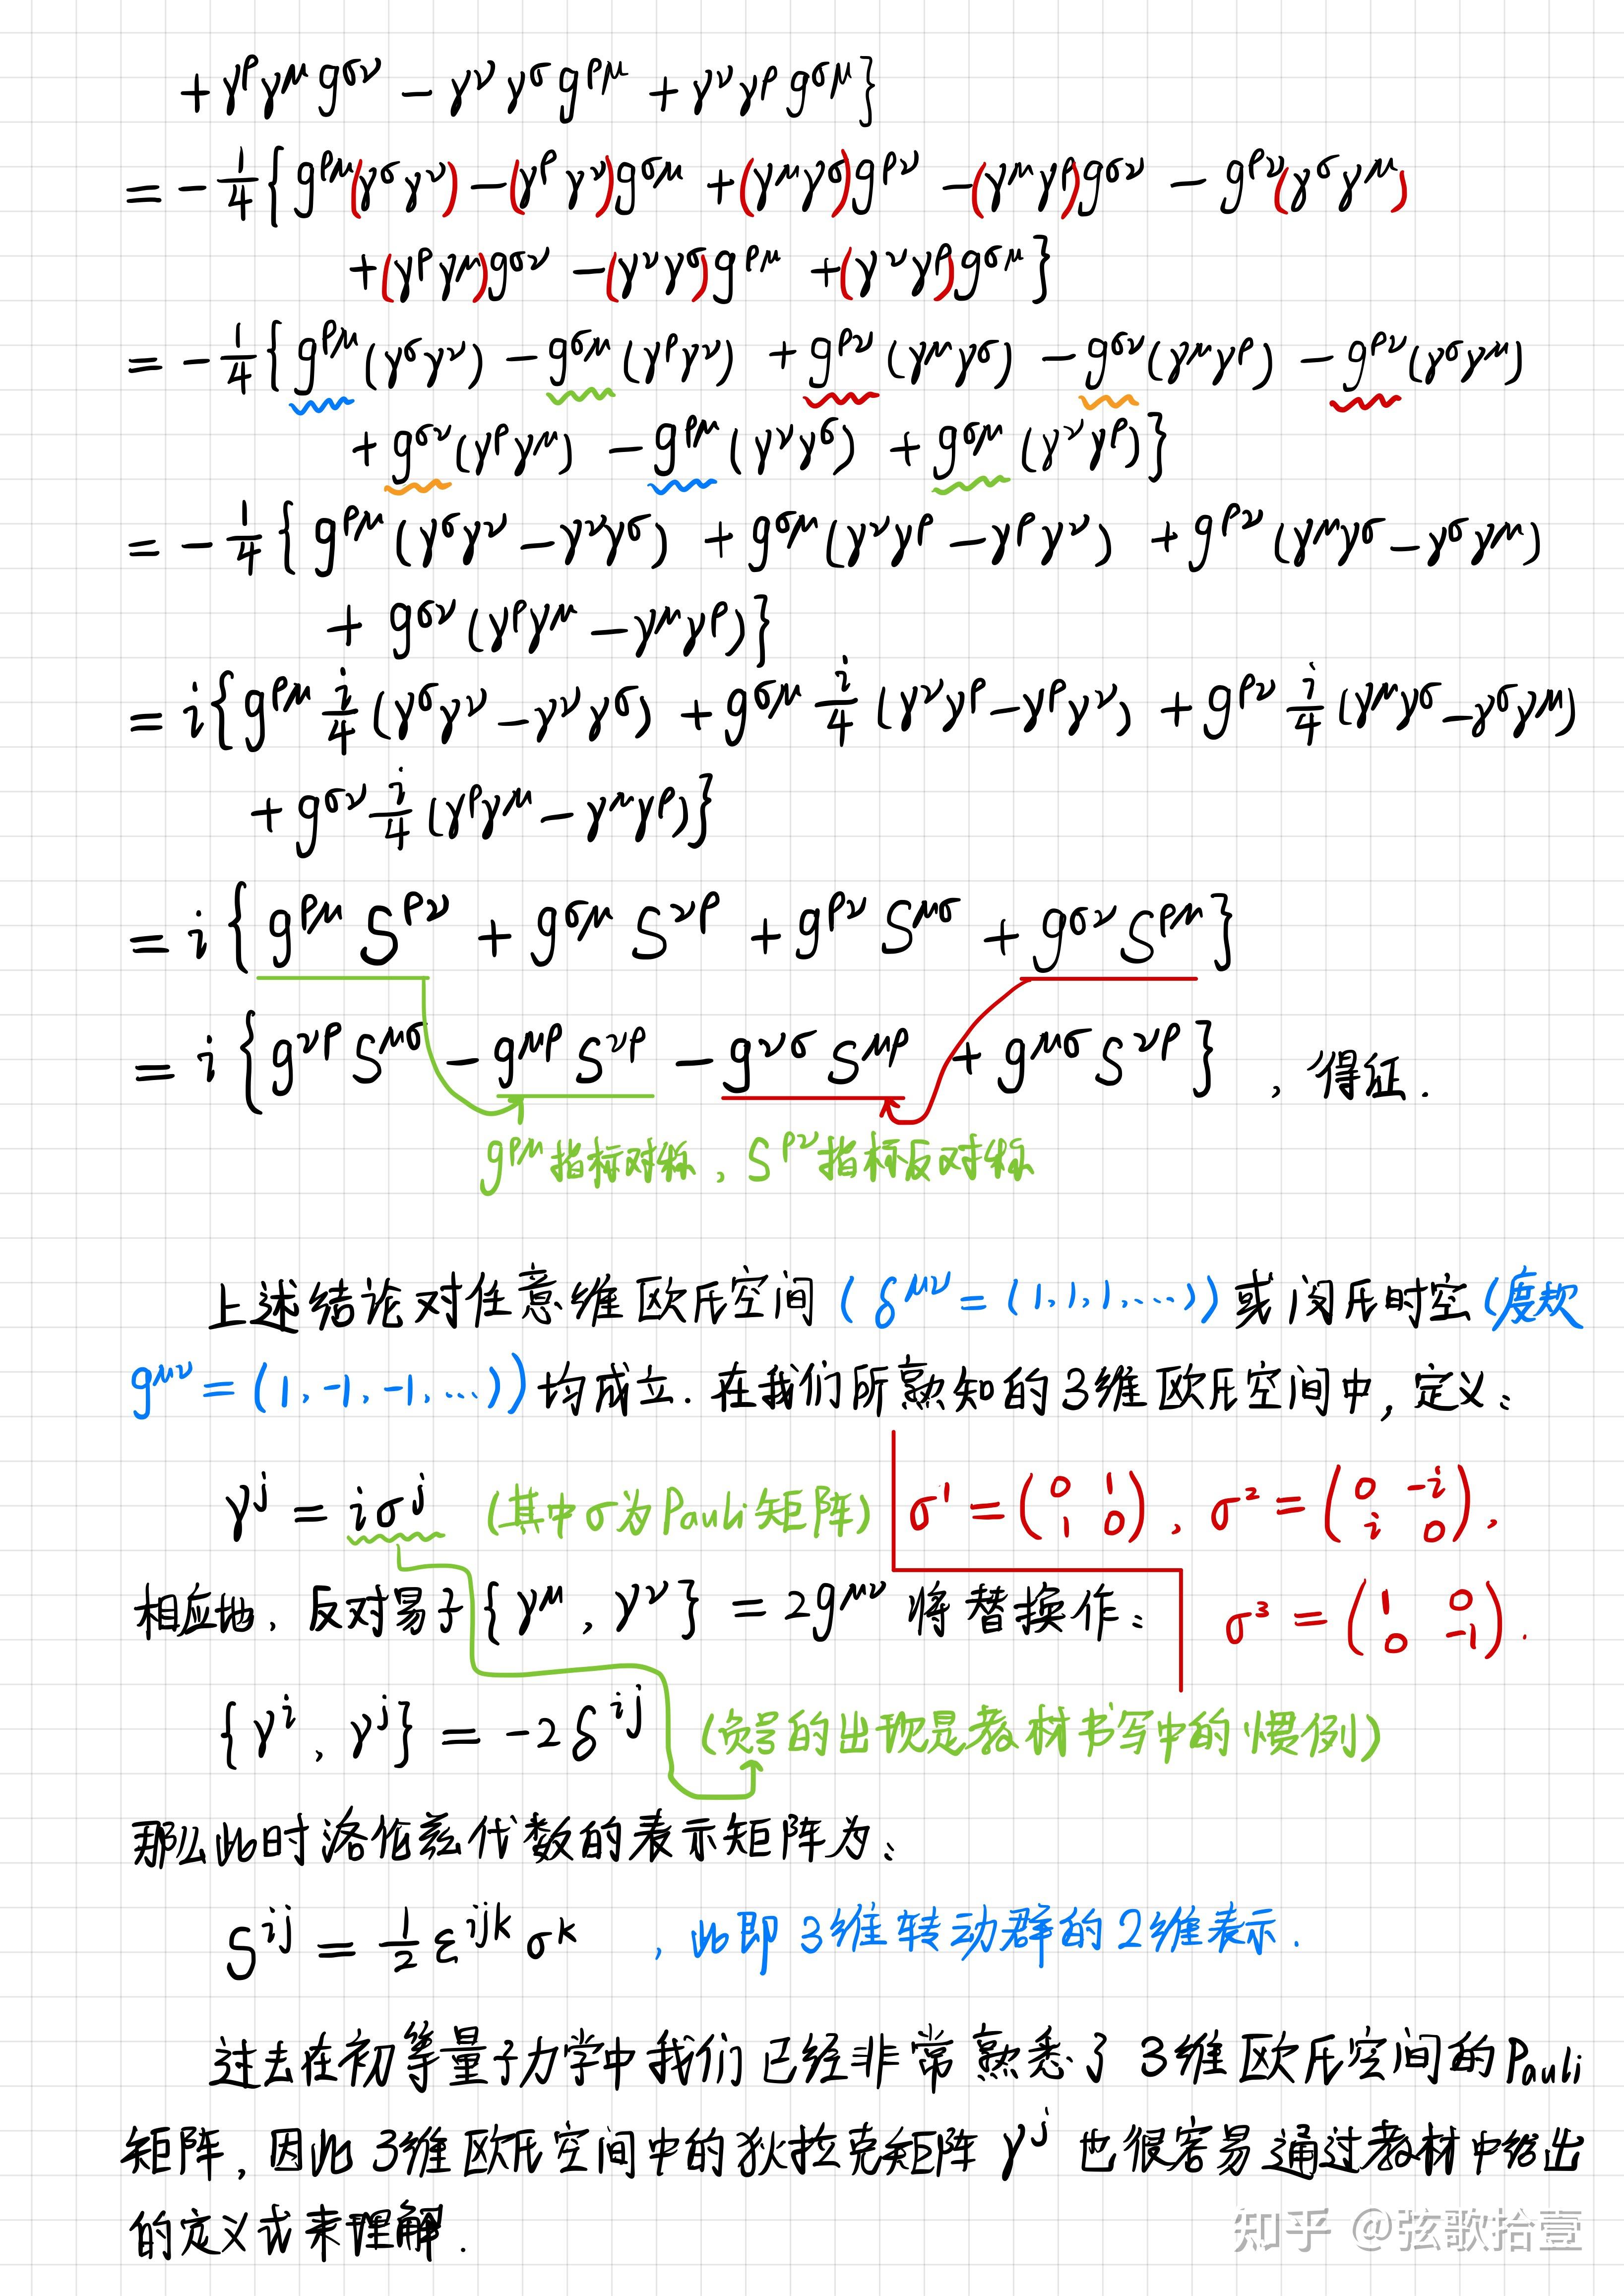 + γ^ρ γ^μ g^{σν} − γ^ν γ^σ g^{ρμ} + γ^ν γ^ρ g^{σμ} }
= −1/4 { g^{ρμ}(γ^σ γ^ν) − (γ^ρ γ^ν)g^{σμ} + (γ^μ γ^σ)g^{ρν} − (γ^μ γ^ρ)g^{σν} − g^{ρν}(γ^σ γ^μ)
+ (γ^ρ γ^μ)g^{σν} − (γ^ν γ^σ)g^{ρμ} + (γ^ν γ^ρ)g^{σμ} }
= −1/4 { g^{ρμ}(γ^σ γ^ν) − g^{σμ}(γ^ρ γ^ν) + g^{ρν}(γ^μ γ^σ) − g^{σν}(γ^μ γ^ρ) − g^{ρν}(γ^σ γ^μ)
+ g^{σν}(γ^ρ γ^μ) − g^{ρμ}(γ^ν γ^σ) + g^{σμ}(γ^ν γ^ρ) }
= −1/4 { g^{ρμ}(γ^σ γ^ν − γ^ν γ^σ) + g^{σμ}(γ^ν γ^ρ − γ^ρ γ^ν) + g^{ρν}(γ^μ γ^σ − γ^σ γ^μ)
+ g^{σν}(γ^ρ γ^μ − γ^μ γ^ρ) }
= i { g^{ρμ} i/4 (γ^σ γ^ν − γ^ν γ^σ) + g^{σμ} i/4 (γ^ν γ^ρ − γ^ρ γ^ν) + g^{ρν} i/4 (γ^μ γ^σ − γ^σ γ^μ)
+ g^{σν} i/4 (γ^ρ γ^μ − γ^μ γ^ρ) }
= i { g^{ρμ} S^{ρν} + g^{σμ} S^{νρ} + g^{ρν} S^{μσ} + g^{σν} S^{ρμ} }
= i { g^{νρ} S^{μσ} − g^{μρ} S^{νρ} − g^{νσ} S^{μρ} + g^{μσ} S^{νρ} } , 得证.
g^{ρμ}指标对称, S^{ρν}指标反对称
上述结论对任意维欧氏空间 (δ^{μν} = (1,1,1,...)) 或闵氏时空 (度规
g^{μν} = (1,-1,-1,...)) 均成立. 在我们所熟知的3维欧氏空间中, 定义:
γ^j = iσ^j (其中σ为Pauli矩阵) σ^1 = (0 1; 1 0), σ^2 = (0 -i; i 0),
相应地, 反对易子 {γ^μ, γ^ν} = 2g^{μν} 将替换作: σ^3 = (1 0; 0 -1).
{γ^i, γ^j} = -2δ^{ij} (负号的出现是教材书写中的惯例)
那么此时洛伦兹代数的表示矩阵为:
S^{ij} = 1/2 ε^{ijk} σ^k , 此即3维转动群的2维表示.
过去在初等量子力学中我们已经非常熟悉了3维欧氏空间的Pauli
矩阵, 因此3维欧氏空间中的狄拉克矩阵 γ^j 也很容易通过教材中给出
的定义式来理解.
知乎 @弦歌拾壹